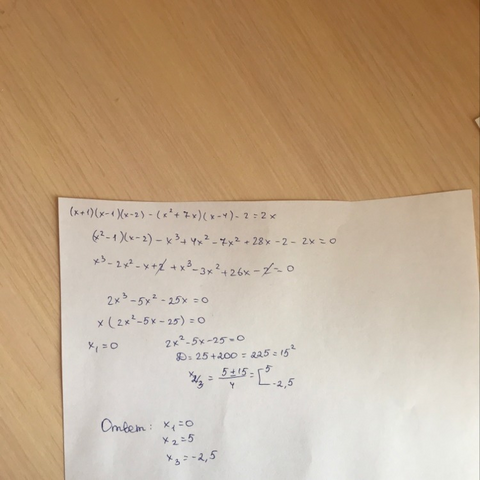 (x+1)(x-1)(x-2) - (x²+7x)(x-4) - 2 = 2x
(x²-1)(x-2) - x³ + 4x² - 7x² + 28x - 2 - 2x = 0
x³ - 2x² - x + 2 + x³ - 3x² + 26x - 2 = 0
2x³ - 5x² - 25x = 0
x(2x² - 5x - 25) = 0
x₁ = 0 2x² - 5x - 25 = 0
D = 25 + 200 = 225 = 15²
x₂/₃ = (5 ± 15)/4 = [5
-2,5
Ответ: x₁ = 0
x₂ = 5
x₃ = -2,5